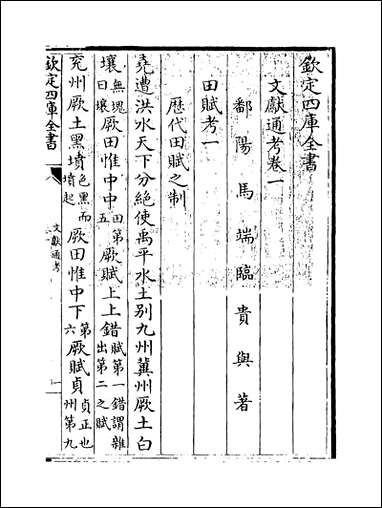 欽定四庫全書
文獻通考卷一
鄱陽馬端臨貴與著
田賦考一
歷代田賦之制
堯遭洪水天下分絶使禹平水土别九州冀州厥土白
壤無塊曰壤厥田惟中中田第五厥賦上上錯賦第一錯謂雜出第二之賦
兖州厥土黑墳色黑而墳起厥田惟中下第六厥賦貞貞正也州第九
欽定四庫全書
文獻通考
一